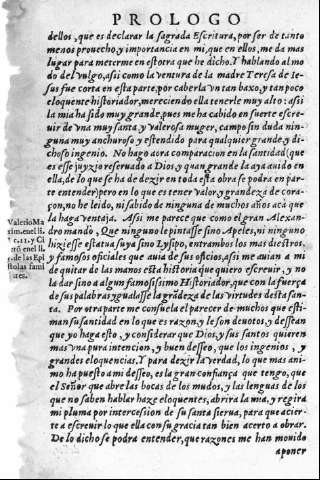 PROLOGO
dellos, que es declarar la sagrada Escritura, por ser de tanto
menos prouecho, y importancia en mi, que en ellos, me da mas
lugar para meterme en estotra que he dicho. Y hablando al mo
do del vulgo, assi como la ventura de la madre Teresa de Ie-
sus fue corta en esta parte, por caberla vn tan baxo, y tan poco
eloquente historiador, mereciendo ella tenerle muy alto: assi
la mia ha sido muy grande, pues me ha cabido en suerte escre
uir de vna muy santa, y valerosa muger, campo sin duda nin-
guna muy anchuroso y estendido para qualquier grande, y di-
choso ingenio. No hago aora comparacion en la santidad (que
es esse juyzio reseruado a Dios, y quan grande la aya auido en
ella, de lo que se ha de dezir en toda esta obra se podra en par-
te entender) pero en lo que es tener valor, y grandeza de cora-
çon, no he leido, ni sabido de ninguna de muchos años acà que
la haga ventaja. Assi me parece que como el gran Alexan-
dro mandò, Que ninguno le pintasse sino Apeles, ni ninguno
hiziesse estatua suya sino Lysipo, entrambos los mas diestros,
y famosos oficiales que auia de sus oficios, assi me auian a mi
de quitar de las manos esta historia que quiero escreuir, y no
la dar sino a algun famosissimo Historiador, que con la fuerça
de sus palabras ygualasse la grãdeza de las virtudes desta san-
ta. Por otra parte me consuela el parecer de muchos que esti-
man su santidad en lo que es razon, y le son deuotos, y dessean
que yo haga esto, y considerar que Dios, y sus santos quieren
mas vna pura intencion, y buen desseo, que los ingenios, y
grandes eloquencias. Y para dezir la verdad, lo que mas ani-
mo ha puesto a mi desseo, es la gran confiança que tengo, que
el Señor que abre las bocas de los mudos, y las lenguas de los
que no saben hablar haze eloquentes, abrira la mia, y regira
mi pluma por intercesion de su santa sierua, para que acier-
te a escreuir lo que ella con su gracia tan bien acerto a obrar.
De lo dicho se podra entender, que razones me han mouido
a poner
Valerio Ma
xim. en el li.
en el li.
de las Epi
stolas fami
liares.